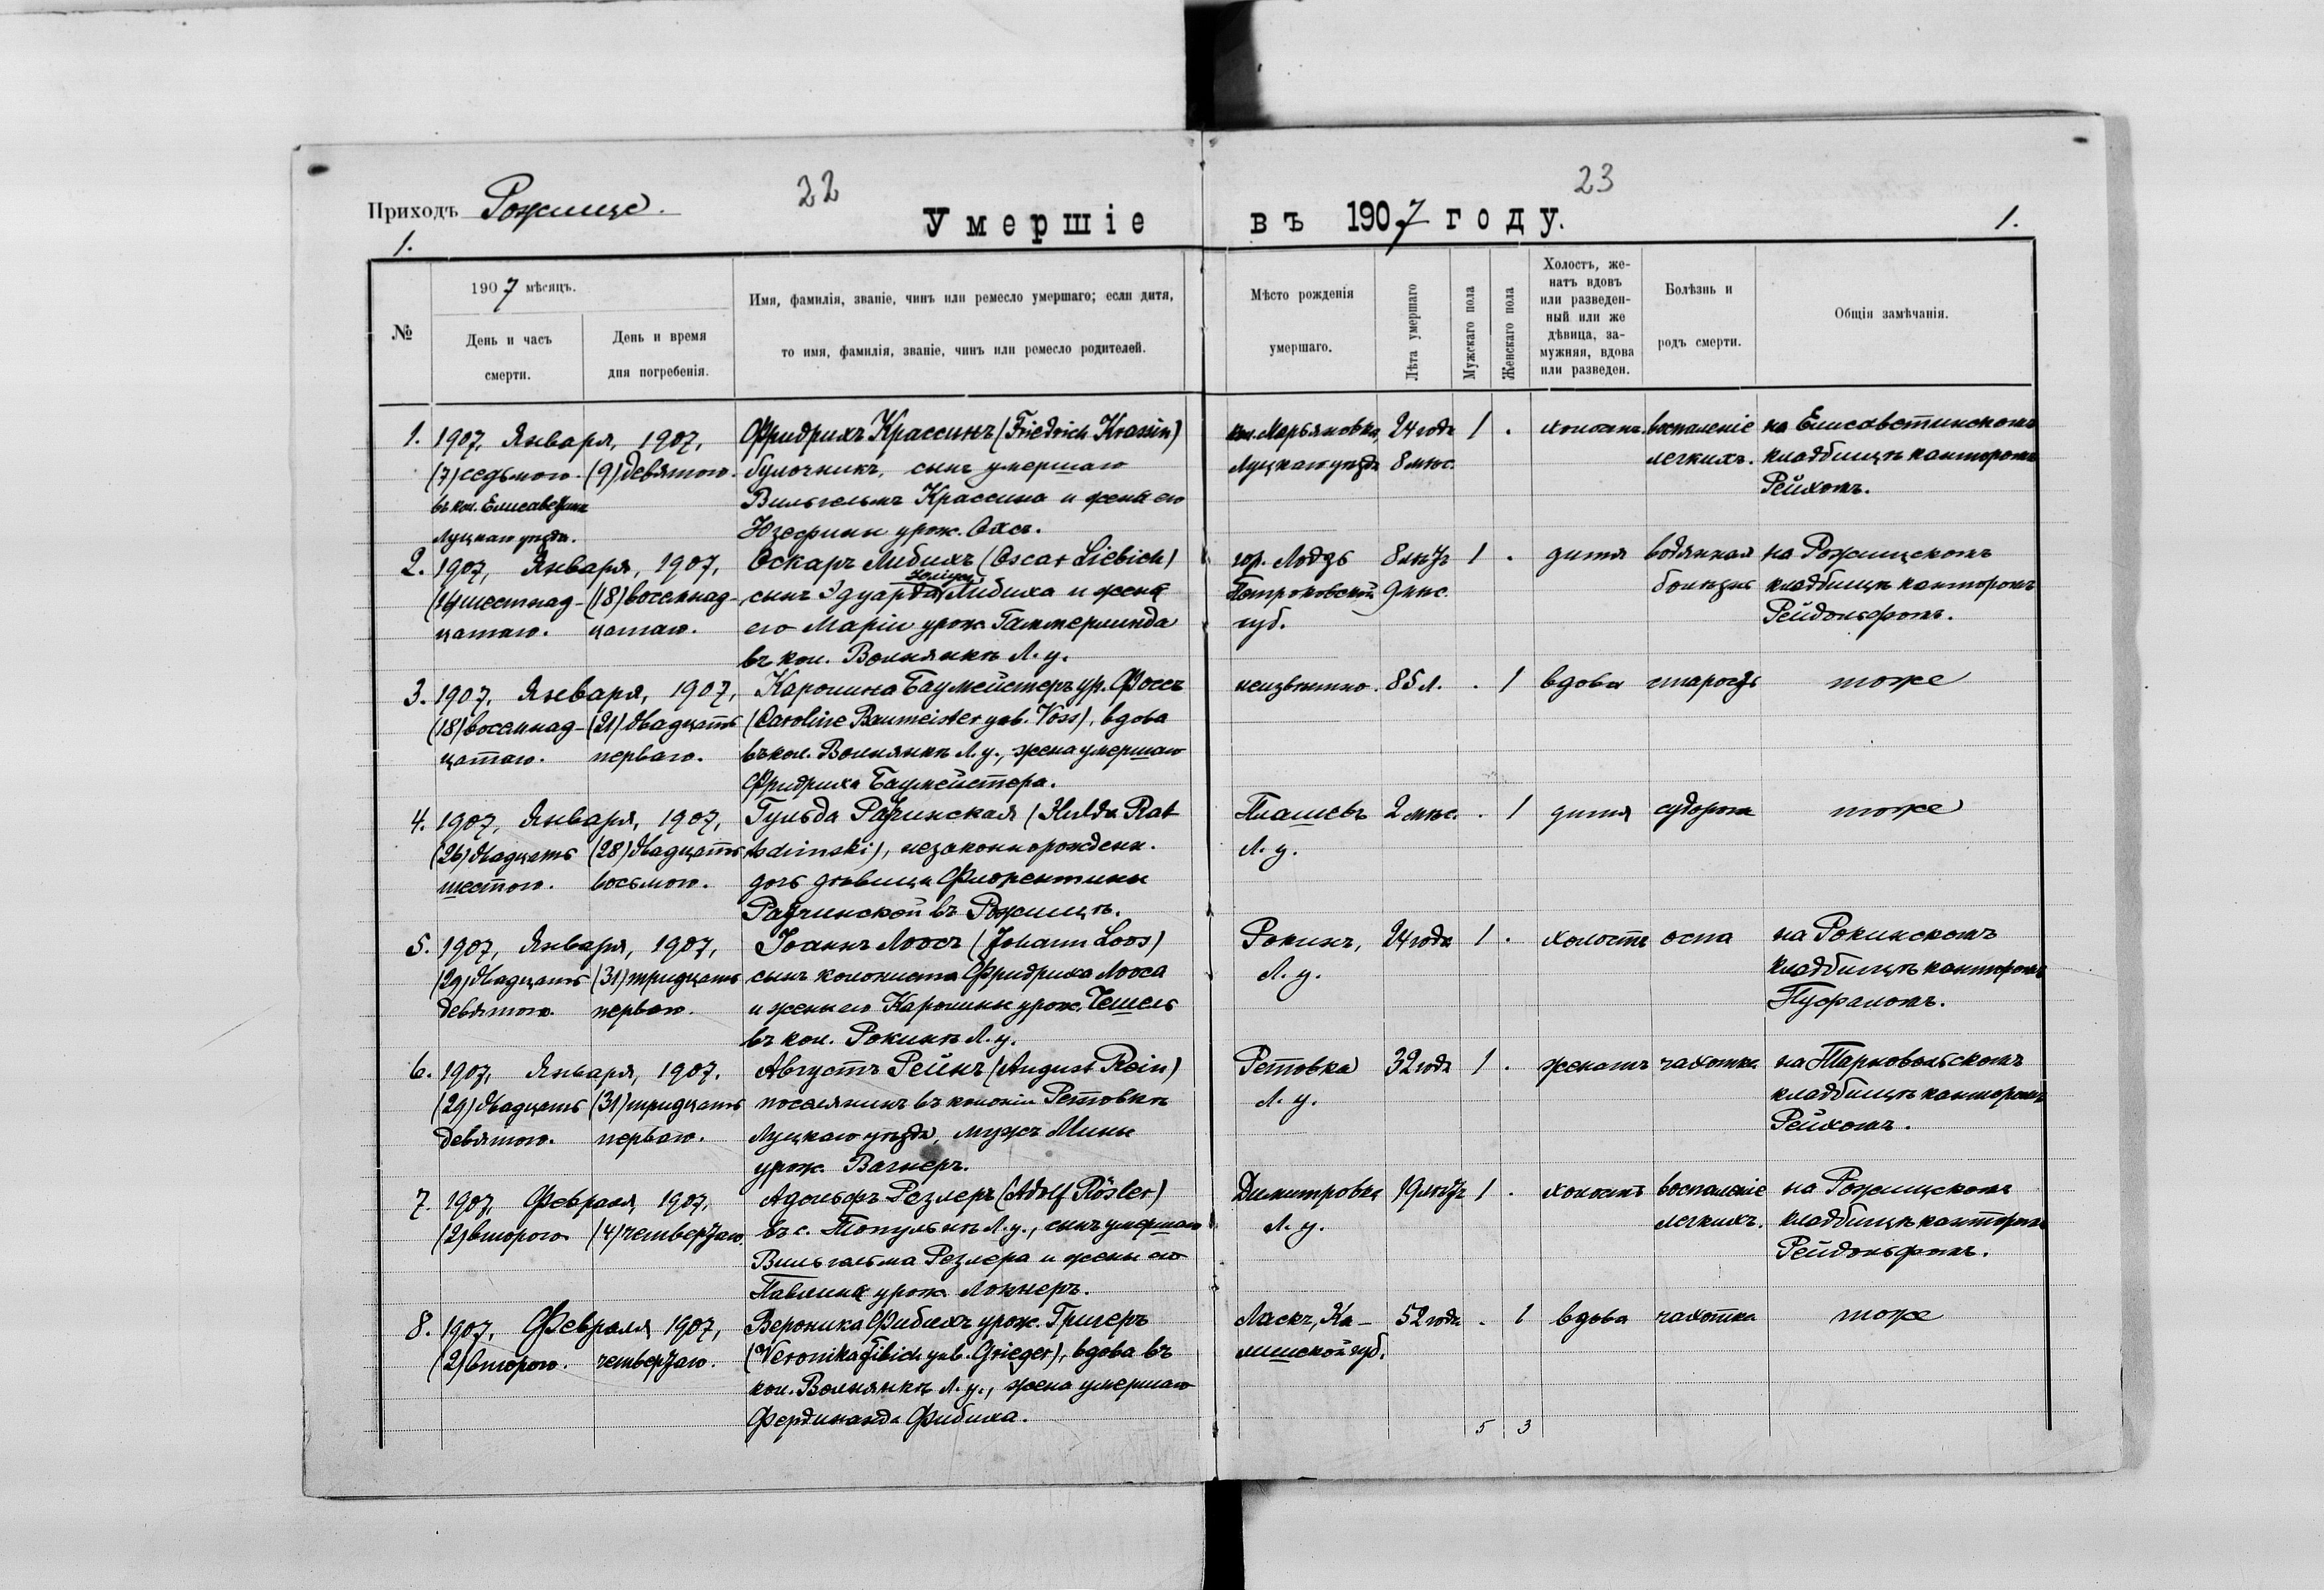 22
23
Приходъ Рожище.
Умершіе въ 1907 году.
1.
1.
№
1907 мѣсяцъ.
День и часъ смерти.
День и время дня погребенія.
Имя, фамилія, званіе, чинъ или ремесло умершаго; если дитя,
то имя, фамилія, званіе, чинъ или ремесло родителей.
Мѣсто рожденія умершаго.
Лѣта умершаго
Мужскаго пола
Женскаго пола
Холостъ, же-
натъ вдовъ
или разведен-
ный или же
дѣвица, за-
мужняя, вдова
или разведен.
Болѣзнь и родъ смерти.
Общія замѣчанія.
1. 1907, Января, 1907, Фридрихъ Крассинъ (Friedrich Krassin) кол. Марьяновка, 24 года 1 . холостъ воспаленіе на Елисаветинскомъ
(7) седьмого. (9) девятого. булочникъ, сынъ умершаго Луцкаго уѣзда 8 мѣс. легкихъ. кладбищѣ канторомъ
въ кол. Елисаветинѣ Вильгельма Крассина и жены его Рейхомъ.
Луцкаго уѣзда. Юзефины урож. Охсъ.
2. 1907, Января, 1907, Оскаръ Либихъ (Oscar Liebich) гор. Лодзь 8 лѣтъ 1 . дитя водянная на Рожищскомъ
(16) шестнад- (18) восемнад- сынъ Эдуарда Либиха и жены Петроковской 9 мѣс. болѣзнь кладбищѣ канторомъ
цатаго. цатаго. его Маріи урож. Гаммермейда губ. Рейдольфомъ.
въ кол. Волнянкѣ Л. у.
3. 1907, Января, 1907, Каролина Баумейстеръ ур. Фоссъ неизвѣстно. 85 л. . 1 вдова старость тоже
(18) восемнад- (21) двадцать (Caroline Baumeister geb. Voss), вдова
цатаго. перваго. въ кол. Волнянкѣ Л. у., жена умершаго
Фридриха Баумейстера.
4. 1907, Января, 1907, Гульда Ратчинская (Hulda Rat Пляшевъ 2 мѣс. . 1 дитя судороги тоже
(26) двадцать (28) двадцать незаконнорожденн. Л. у.
шестого. восьмого. дочь дѣвицы Флорентины
Ратчинской въ Рожищѣ.
5. 1907, Января, 1907, Іоаннъ Лоосъ (Johann Loos) Рокинъ, 24 года 1 . холостъ оспа на Рокинскомъ
(29) двадцать (31) тридцать сынъ колониста Фридриха Лооса Л. у. кладбищѣ канторомъ
девятого. перваго. и жены его Каролины урож. Чешель Пуфаломъ.
въ кол. Рокинѣ Л. у.
6. 1907, Января, 1907. Августъ Рейнъ (August Rein) Ретовка 32 года 1 . женатъ чахотка на Тарновольскомъ
(29) двадцать (31) тридцать поселянинъ въ колоніи Ретовкѣ Л. у. кладбищѣ канторомъ
девятого. перваго. Луцкаго уѣзда, мужъ Мины Рейхомъ.
урож. Вагнеръ.
7. 1907, Февраля, 1907, Адольфъ Резлеръ (Adolf Rösler) Димитровка 19 лѣтъ 1 . холостъ воспаленіе на Рожищскомъ
(2) второго (4) четвертаго. въ с. Топульнѣ Л. у., сынъ умершаго Л. у. легкихъ. кладбищѣ канторомъ
Вильгельма Резлера и жены его Рейдольфомъ.
Павлины урож. Локнеръ.
8. 1907, Февраля 1907, Вероника Фибихъ урож. Григеръ Ласкъ, Ка- 52 года . 1 вдова чахотка тоже
(2) второго. четвертаго. (Veronika Fibich geb. Grieger), вдова въ лишской губ.
кол. Волнянкѣ Л. у., жена умершаго
Фердинанда Фибиха.
5 3